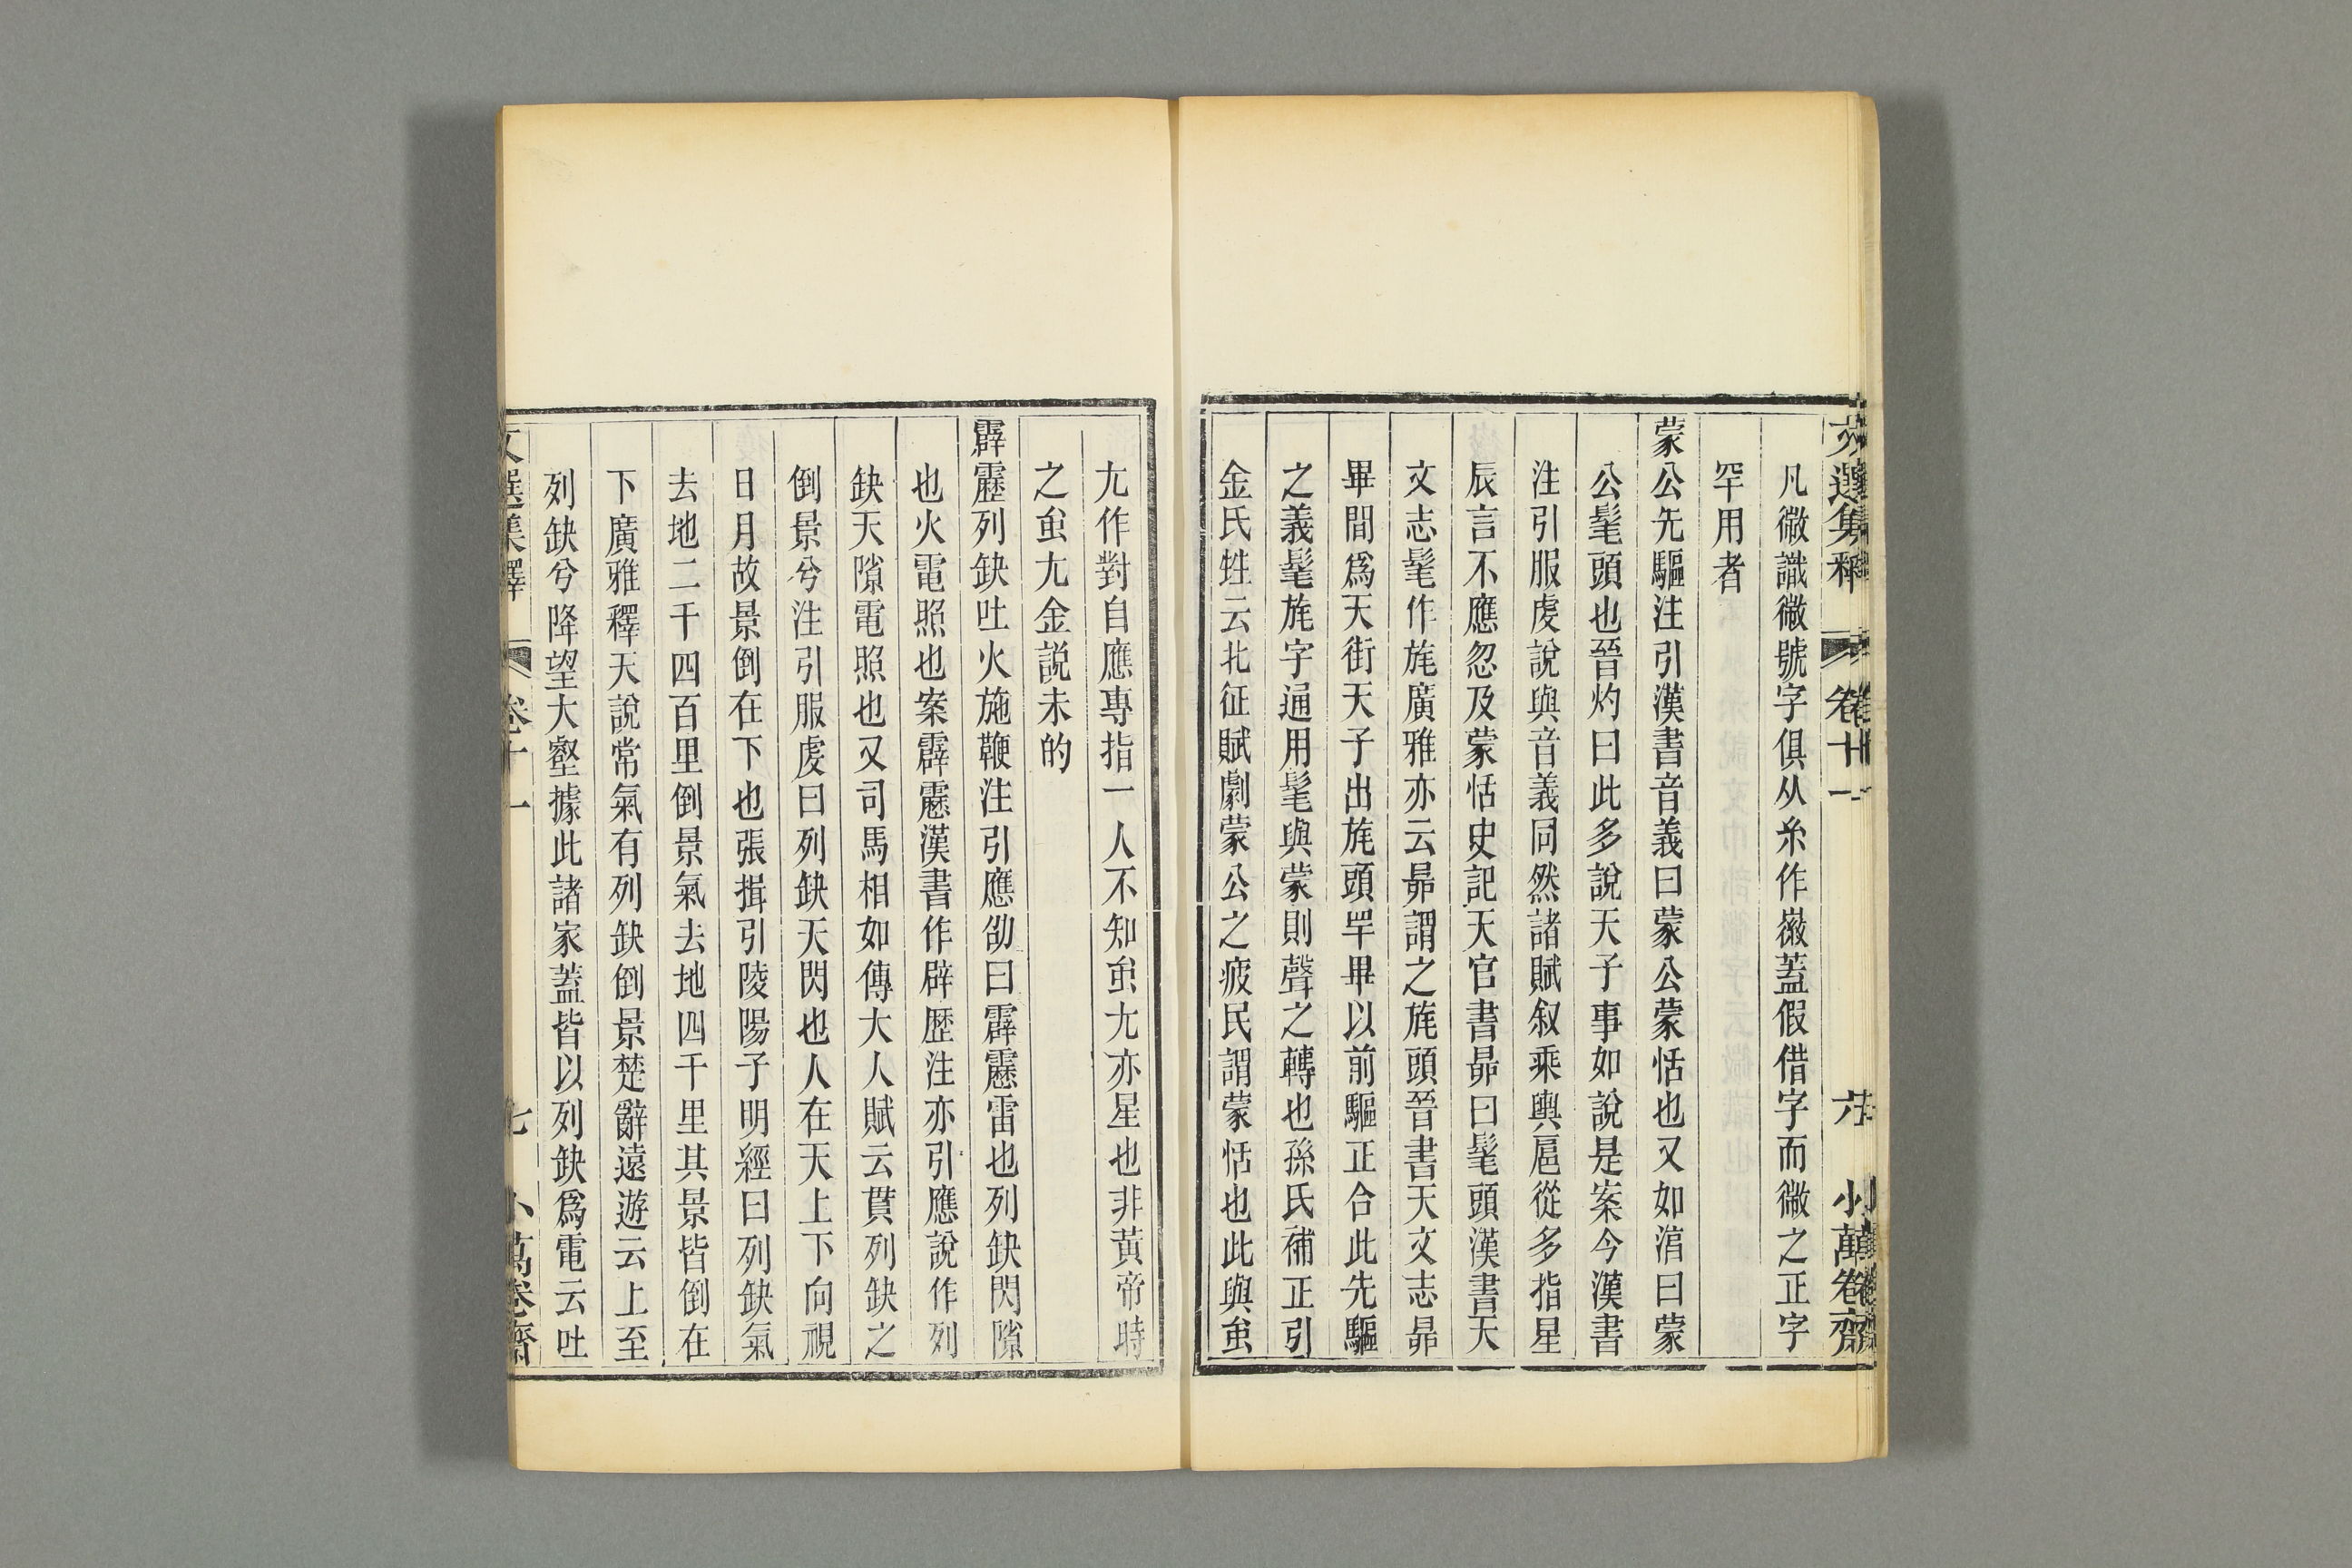 文選集釋 卷十一 六 小萬卷齋
凡徽識徽號字俱从糸作徽蓋假借字而微之正字
罕用者
蒙公先驅注引漢書音義曰蒙公蒙恬也又如淳曰蒙
公髦頭也晉灼曰此多說天子事如說是案今漢書
注引服虔說與音義同然諸賦叙乘輿扈從多指星
辰言不應忽及蒙恬史記天官書昴曰髦頭漢書天
文志髦作旄廣雅亦云昴謂之旄頭晉書天文志昴
畢間爲天街天子出旄頭罕畢以前驅正合此先驅
之義髦旄字通用髦與蒙則聲之轉也孫氏補正引
金氏甡云北征賦劇蒙公之疲民謂蒙恬也此與蚩
尤作對自應專指一人不知蚩尤亦星也非黃帝時
之蚩尤金説未的
霹靂列缺吐火施鞭注引應劭曰霹靂雷也列缺閃隙
也火電照也案霹靂漢書作辟歷注亦引應說作列
缺天隙電照也又司馬相如傳大人賦云貫列缺之
倒景兮注引服虔曰列缺天閃也人在天上下向視
日月故景倒在下也張揖引陵陽子明經曰列缺氣
去地二千四百里倒景氣去地四千里其景皆倒在
下廣雅釋天說常氣有列缺倒景楚辭遠遊云上至
列缺兮降望大壑據此諸家蓋皆以列缺爲電云吐
文選集釋 卷十一 七 小萬卷齋